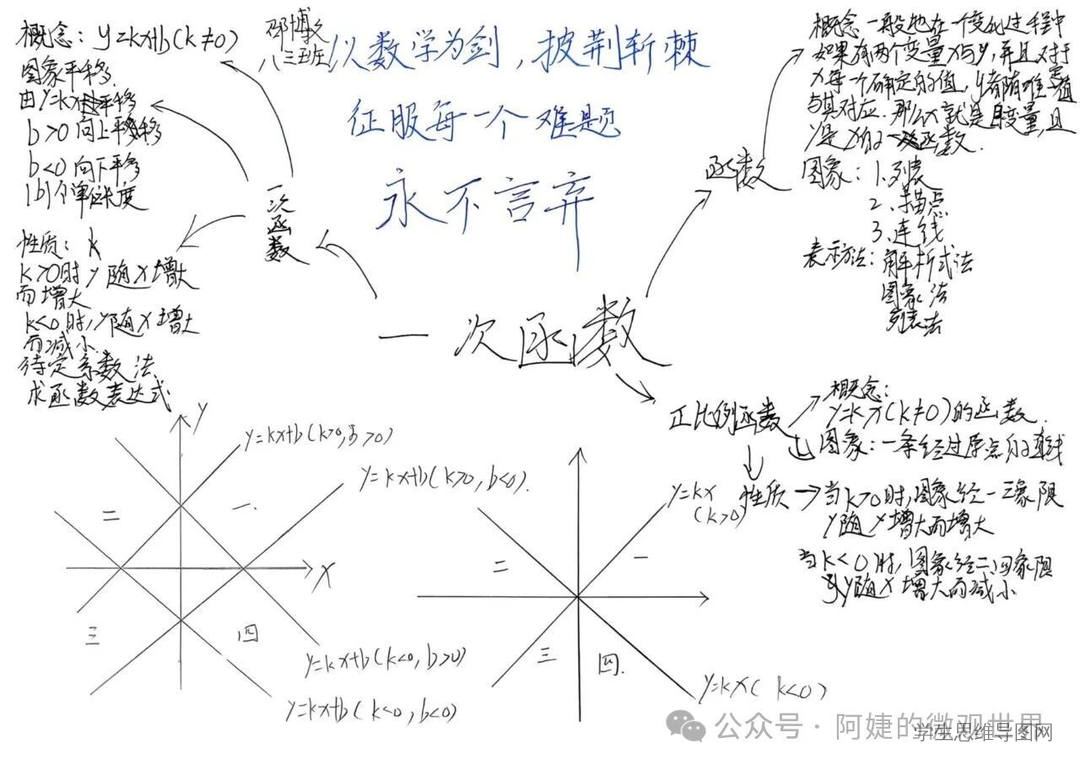 以数学为剑，披荆斩棘
征服每一个难题
永不言弃
八三五班
一次函数
一次函数
概念：y=kx+b(k≠0)
图象平移.
由y=kx平移
b>0 向上平移
b<0 向下平移
|b|个单位长度
性质：k
k>0时 y随x增大
而增大
k<0时，y随x增大
而减小
待定系数法
求函数表达式
函数
概念 一般地在一个变化过程中
如果有两个变量x与y，并且对于
x每一个确定的值，y都有唯一值
与其对应. 那么x就是自变量，且
y是x的函数.
图象：1.列表
2.描点
3.连线
表示方法：解析式法
图象法
列表法
正比例函数
概念：
y=kx(k≠0)的函数.
图象：一条经过原点的直线
性质
当k>0时，图象经一三象限
y随x增大而增大
当k<0时，图象经二四象限
y随x增大而减小
y
y=kx+b(k>0,b>0)
y=kx+b(k>0,b<0).
二
一.
x
三
四
y=kx+b(k<0,b>0)
y=kx+b(k<0,b<0)
y=kx
(k>0)
二
一
三
四.
y=kx(k<0)
公众号·阿婕的微观世界
学生思维导图网